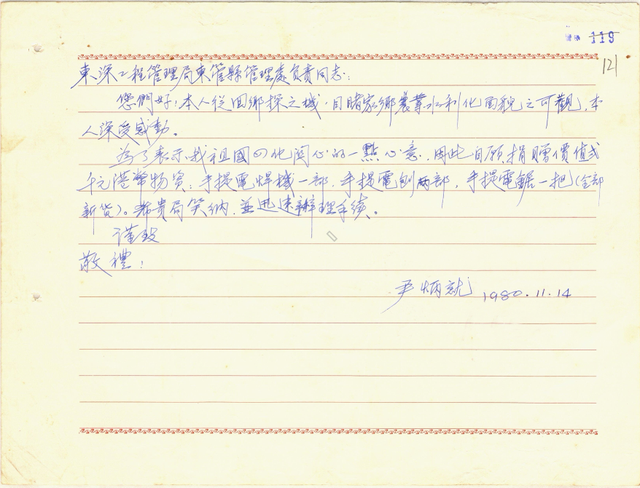 119
121
東深工程管理局東管縣管理處負責同志:
您們好!本人從回鄉探之機,目睹家鄉農業水利化面貌之可觀,本
人深受感動。
為了表示我祖國四化関心的一點心意,因此自願捐贈價值弍
仟元港幣物資,手提電焊機一部,手提電刨兩部,手提電鋸一把(全部
新貨)。希貴局笑納,並迅速辦理手續。
謹致
敬禮!
尹炳就 1980.11.14